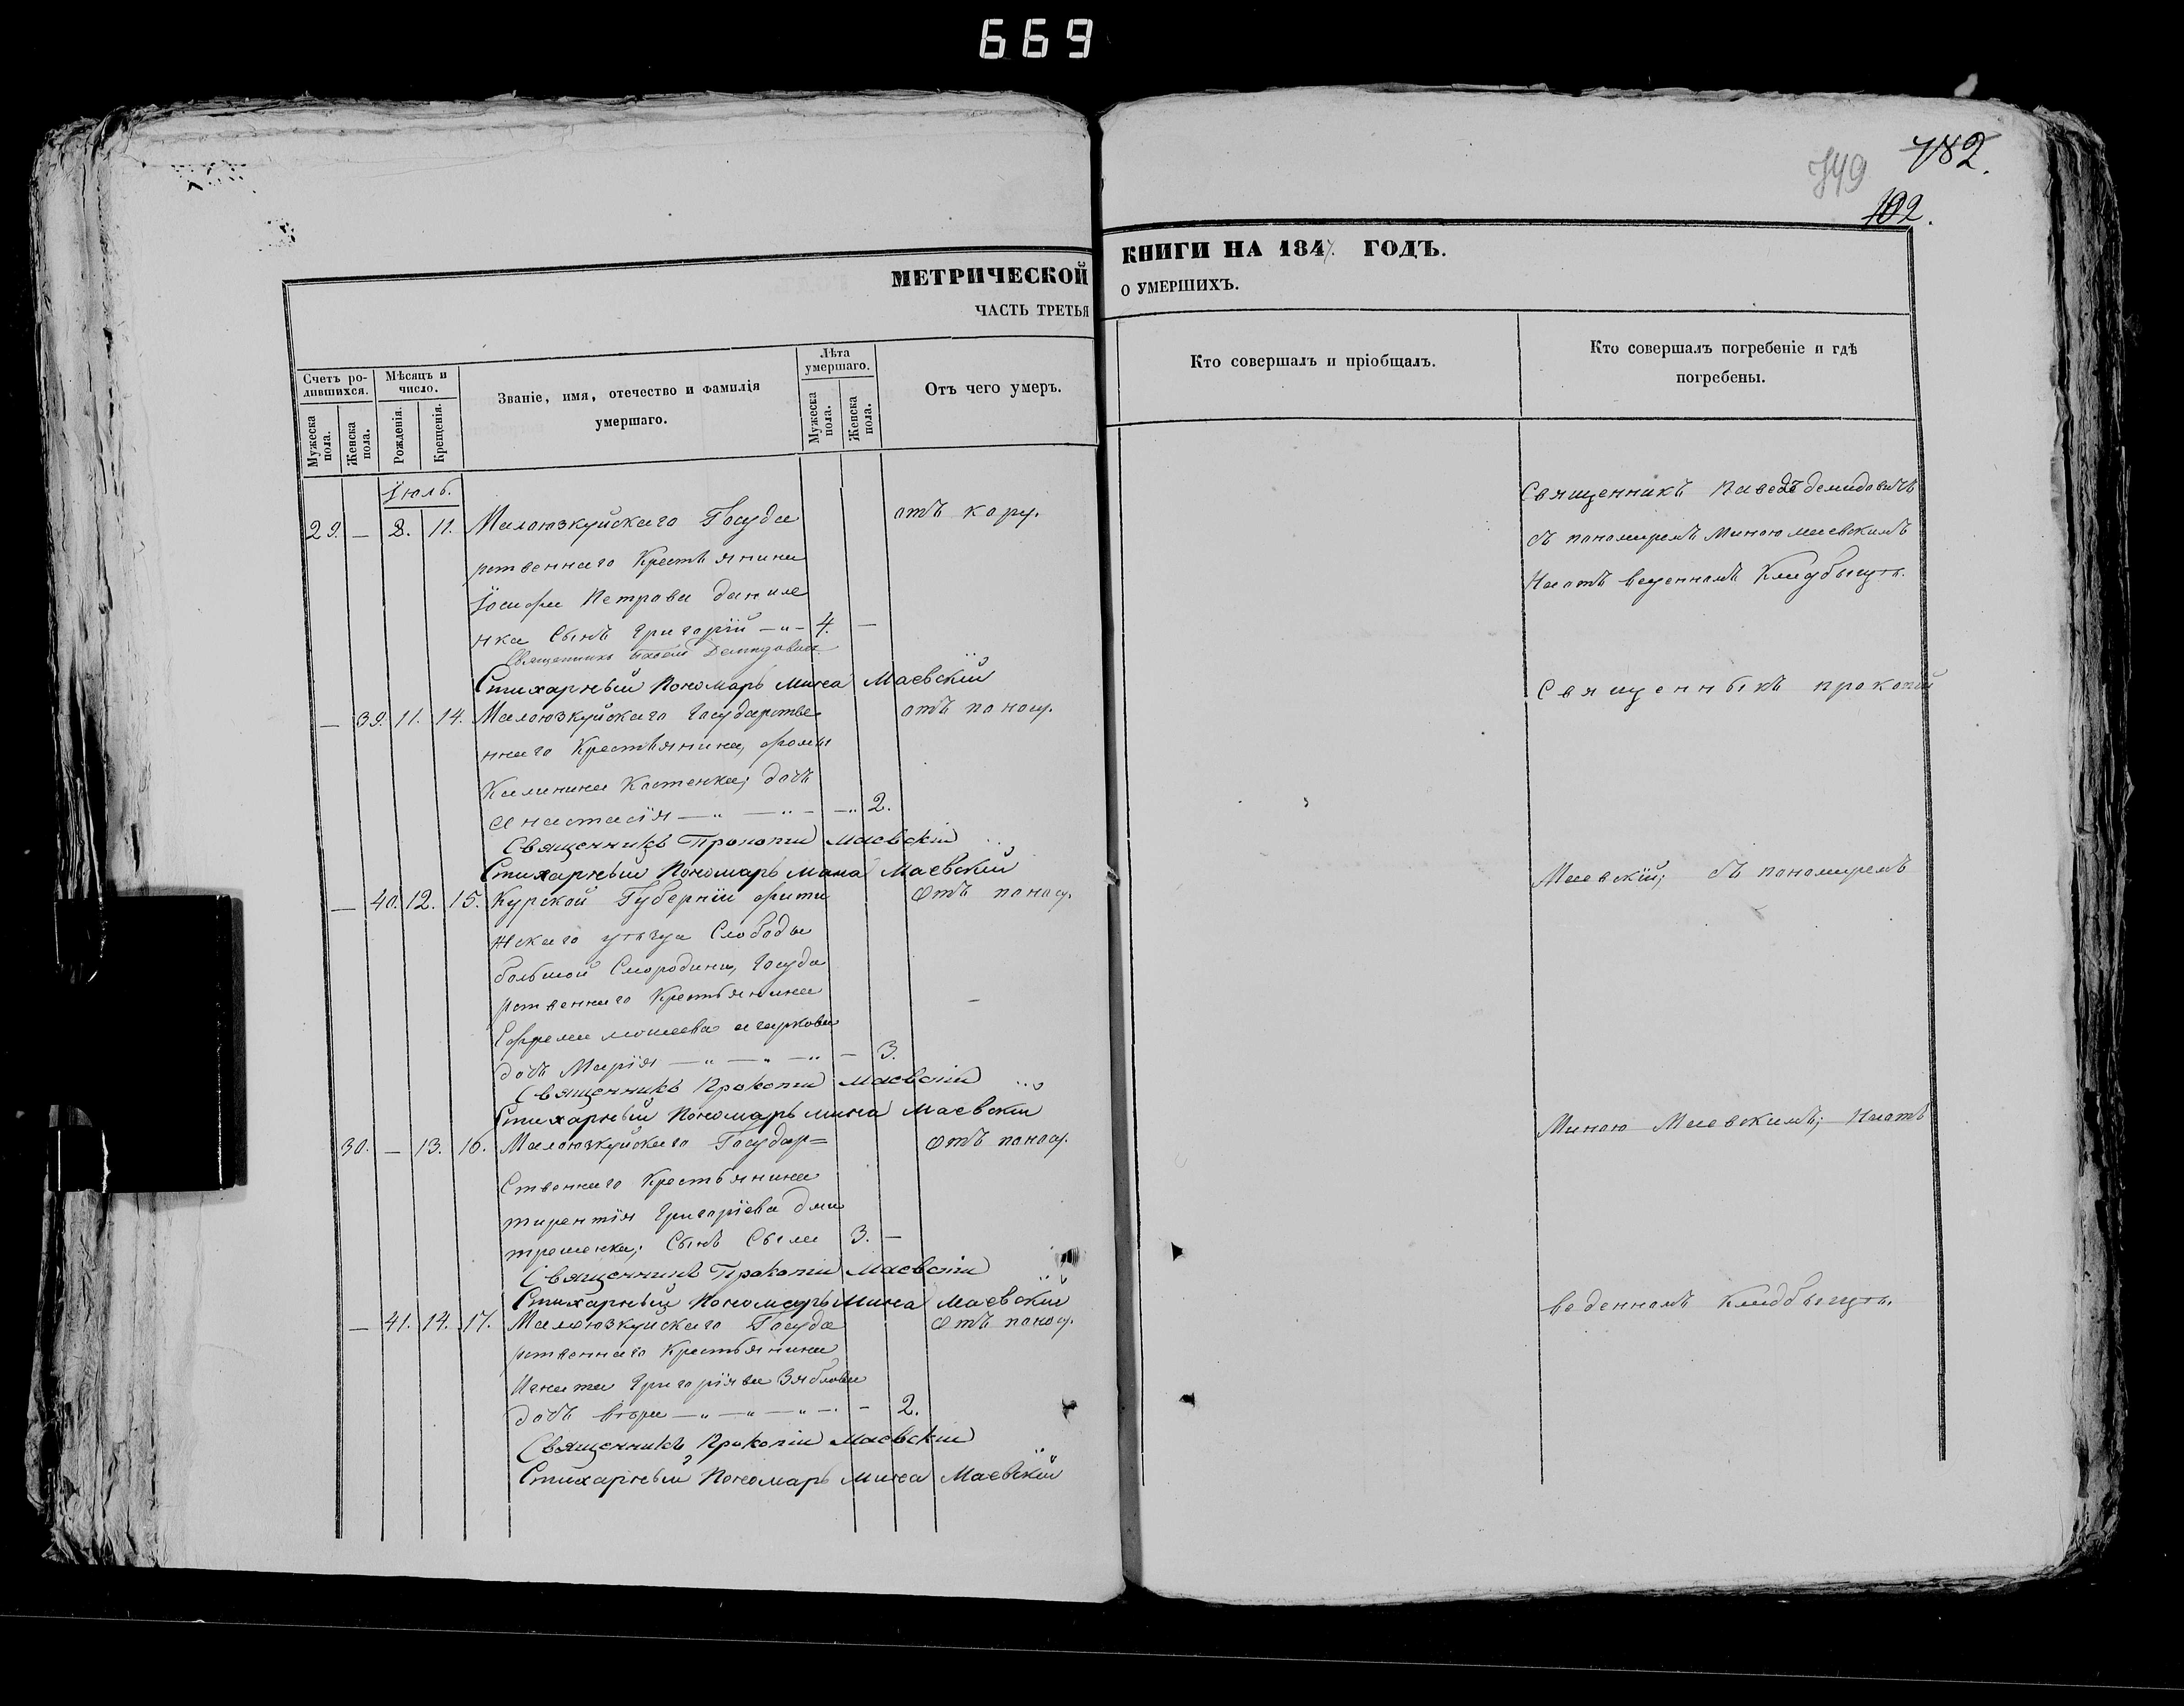 669
749
182.
102.
МЕТРИЧЕСКОЙ КНИГИ НА 1847. ГОДЪ.
ЧАСТЬ ТРЕТЬЯ О УМЕРШИХЪ.
Счетъ ро-
дившихся.
Мужеска
пола.
Женска
пола.
Мѣсяцъ и
число.
Рожденія.
Крещенія.
Званіе, имя, отечество и фамилія
умершаго.
Лѣта
умершаго.
Мужеска
пола.
Женска
пола.
Отъ чего умеръ.
Кто совершалъ и пріобщалъ.
Кто совершалъ погребеніе и гдѣ
погребены.
Іюль.
29. — 8. 11. Малоюзкуйскаго Госуда отъ кору.
рственнаго Крестьянина
Іосифа Петрова Даниле
нка Сынъ Григорій — " — 4. —
Священникъ Павелъ Демидовичъ
Стихарный Пономарь Мина Маевскій
— 39. 11. 14. Малоюзкуйскаго Государстве отъ поносу.
ннаго Крестьянина, фомы
Калинина Костенка; дочь
Анастасія — " — " — — " 2.
Священникъ Прокопій Маевскій
Стихарный Пономарь Мина Маевскій
— 40. 12. 15. Курской Губерніи Отъ поносу.
уѣзда Слободы
большой Смородины, Госуда
рственнаго Крестьянина
Ефрема
дочь Марія — " — " — " — 3.
Священникъ Прокопій Маевскій
Стихарный Пономарь Мина Маевскій
30. — 13. 16. Малоюзкуйскаго Государ= Отъ поносу.
Ственнаго Крестьянина
терентія Григоріева Дми
тренка; Сынъ Сыла 3. —
Священникъ Прокопій Маевскій
Стихарный Пономарь Мина Маевскій
— 41. 14. 17. Малоюзкуйскаго Госуда Отъ поносу.
рственнаго Крестьянина
Игната Григоріева Зяблова
дочь вѣра — " — " — " — . — 2.
Священникъ Прокопій Маевскій
Стихарный Пономарь Мина Маевскій
Священникъ Павелъ Демидовичъ
съ пономаремъ Миною Маевскимъ
На отъ веденномъ Кладбищѣ.
Священныкъ прокопій
Маевскій; съ пономаремъ
Миною Маевкимъ; На отъ
веденномъ Кладбыщѣ.